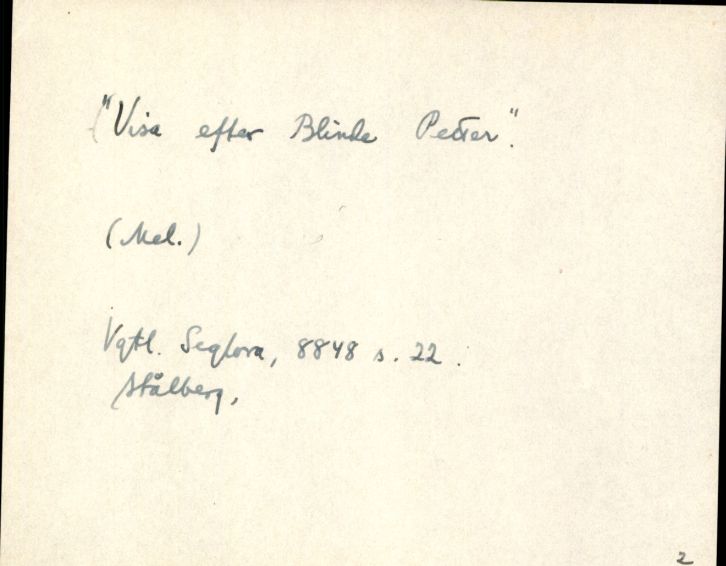 "Visa efter Blinde Petter".
(Mel.)
Vgtl. Seglora, 8848 s. 22.
Stålberg.
2